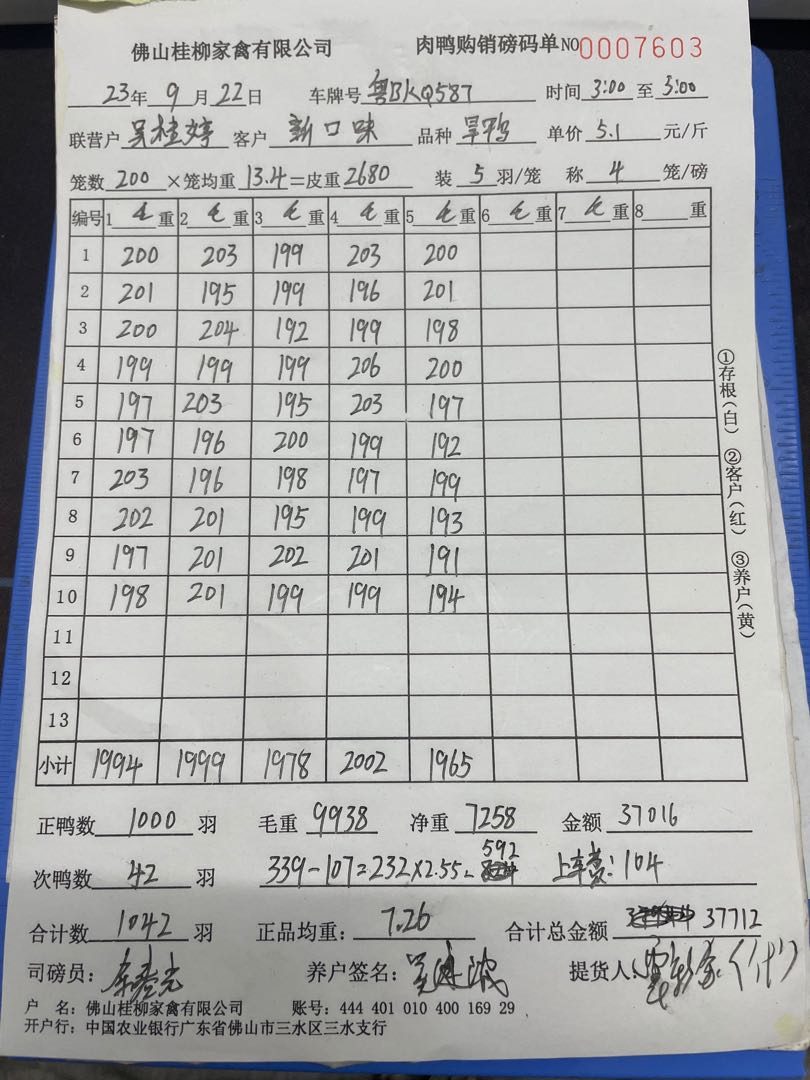 佛山桂柳家禽有限公司 肉鸭购销磅码单 NO 0007603
23年 9 月 22 日 车牌号 粤BKQ587 时间 3:00 至 3:00
联营户 吴桂婷 客户 新口味 品种 旱鸭 单价 5.1 元/斤
笼数 200 ×笼均重 13.4 =皮重 2680 装 5 羽/笼 称 4 笼/磅
编号 1 毛 重 2 毛 重 3 毛 重 4 毛 重 5 毛 重 6 毛 重 7 毛 重 8 重
1 200 203 199 203 200
2 201 195 199 196 201
3 200 204 192 199 198
4 199 199 199 206 200
5 197 203 195 203 197
6 197 196 200 199 192
7 203 196 198 197 199
8 202 201 195 199 193
9 197 201 202 201 191
10 198 201 199 199 194
11
12
13
小计 1994 1999 1978 2002 1965
①存根(白) ②客户(红) ③养户(黄)
正鸭数 1000 羽 毛重 9938 净重 7258 金额 37016
次鸭数 42 羽 339-107=232×2.55= 592 上车费:104
合计数 1042 羽 正品均重: 7.26 合计总金额 37712
司磅员: 养户签名: 提货人: (代)
户 名: 佛山桂柳家禽有限公司 账号: 444 401 010 400 169 29
开户行: 中国农业银行广东省佛山市三水区三水支行